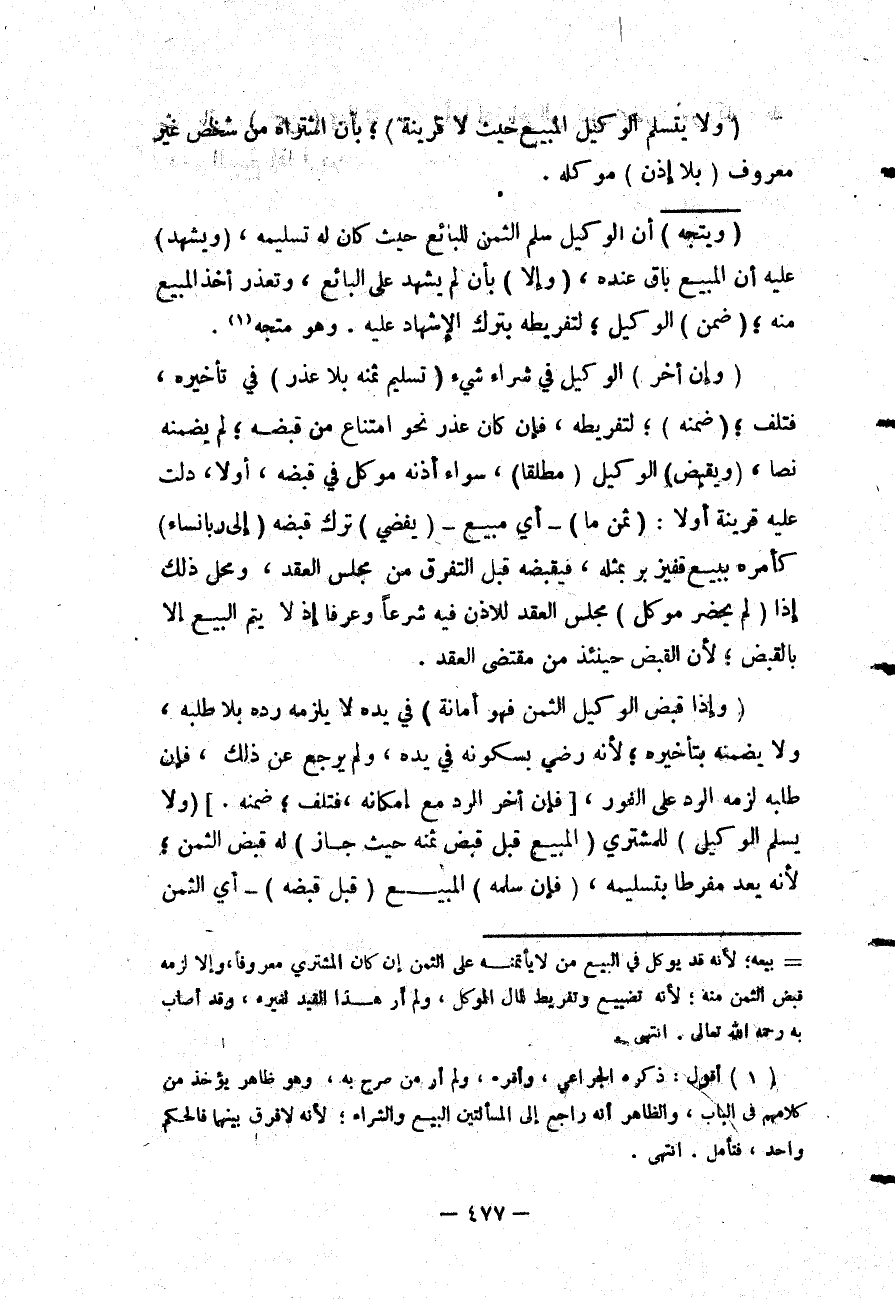 ( ولا يتسلم الوكيل المبيع حيث لا قرينة ) ؛ بأن اشتراه من شخص غير
معروف ( بلا إذن ) موكله .
( ويتجه ) أن الوكيل سلم الثمن للبائع حيث كان له تسليمه ، ( ويشهد )
عليه أن المبيع باق عنده ، ( وإلا ) بأن لم يشهد على البائع ، وتعذر أخذ المبيع
منه ؛ ( ضمن ) الوكيل ؛ لتفريطه بترك الإشهاد عليه . وهو متجه (١) .
( وإن أخر ) الوكيل في شراء شيء ( تسليم ثمنه بلا عذر ) في تأخيره ،
فتلف ؛ ( ضمنه ) ؛ لتفريطه ، فإن كان عذر نحو امتناع من قبضه ؛ لم يضمنه
نصا ، ( ويقبض ) الوكيل ( مطلقا ) ، سواء أذنه موكل في قبضه ، أولا ، دلت
عليه قرينة أولا : ( ثمن ما ) – أي مبيع – ( يفضي ) ترك قبضه ( إلى ربا نساء )
كأمره ببيع قفيز بر بمثله ، فيقبضه قبل التفرق من مجلس العقد ، ومحل ذلك
إذا ( لم يحضر موكل ) مجلس العقد للاذن فيه شرعاً وعرفا إذ لا يتم البيع الا
بالقبض ؛ لأن القبض حينئذ من مقتضى العقد .
( وإذا قبض الوكيل الثمن فهو أمانة ) في يده لا يلزمه رده بلا طلبه ،
ولا يضمنه بتأخيره ؛ لأنه رضي بسكونه في يده ، ولم يرجع عن ذلك ، فإن
طلبه لزمه الرد على الفور ، [ فإن أخر الرد مع امكانه ، فتلف ؛ ضمنه . ] ( ولا
يسلم الوكيل ) للمشتري ( المبيع قبل قبض ثمنه حيث جاز ) له قبض الثمن ؛
لأنه يعد مفرطا بتسليمه ، ( فإن سلمه ) المبيــــع ( قبل قبضه ) – أي الثمن
= بيعه ؛ لأنه قد يوكل في البيع من لا يأتمنــه على الثمن إن كان المشتري معروفاً ، وإلا لزمه
قبض الثمن منه ؛ لأنه تضييع وتفريط لمال الموكل ، ولم أر هـذا القيد لغيره ، وقد أصاب
به رحمه الله تعالى . انتهى .
( ١ ) أقول : ذكره الجراعي ، وأقره ، ولم أر من صرح به ، وهو ظاهر يؤخذ من
كلامهم في الباب ، والظاهر أنه راجع إلى المسألتين البيع والشراء ؛ لأنه لا فرق بينها فالحكم
واحد ، فتأمل . انتهى .
– ٤٧٧ –